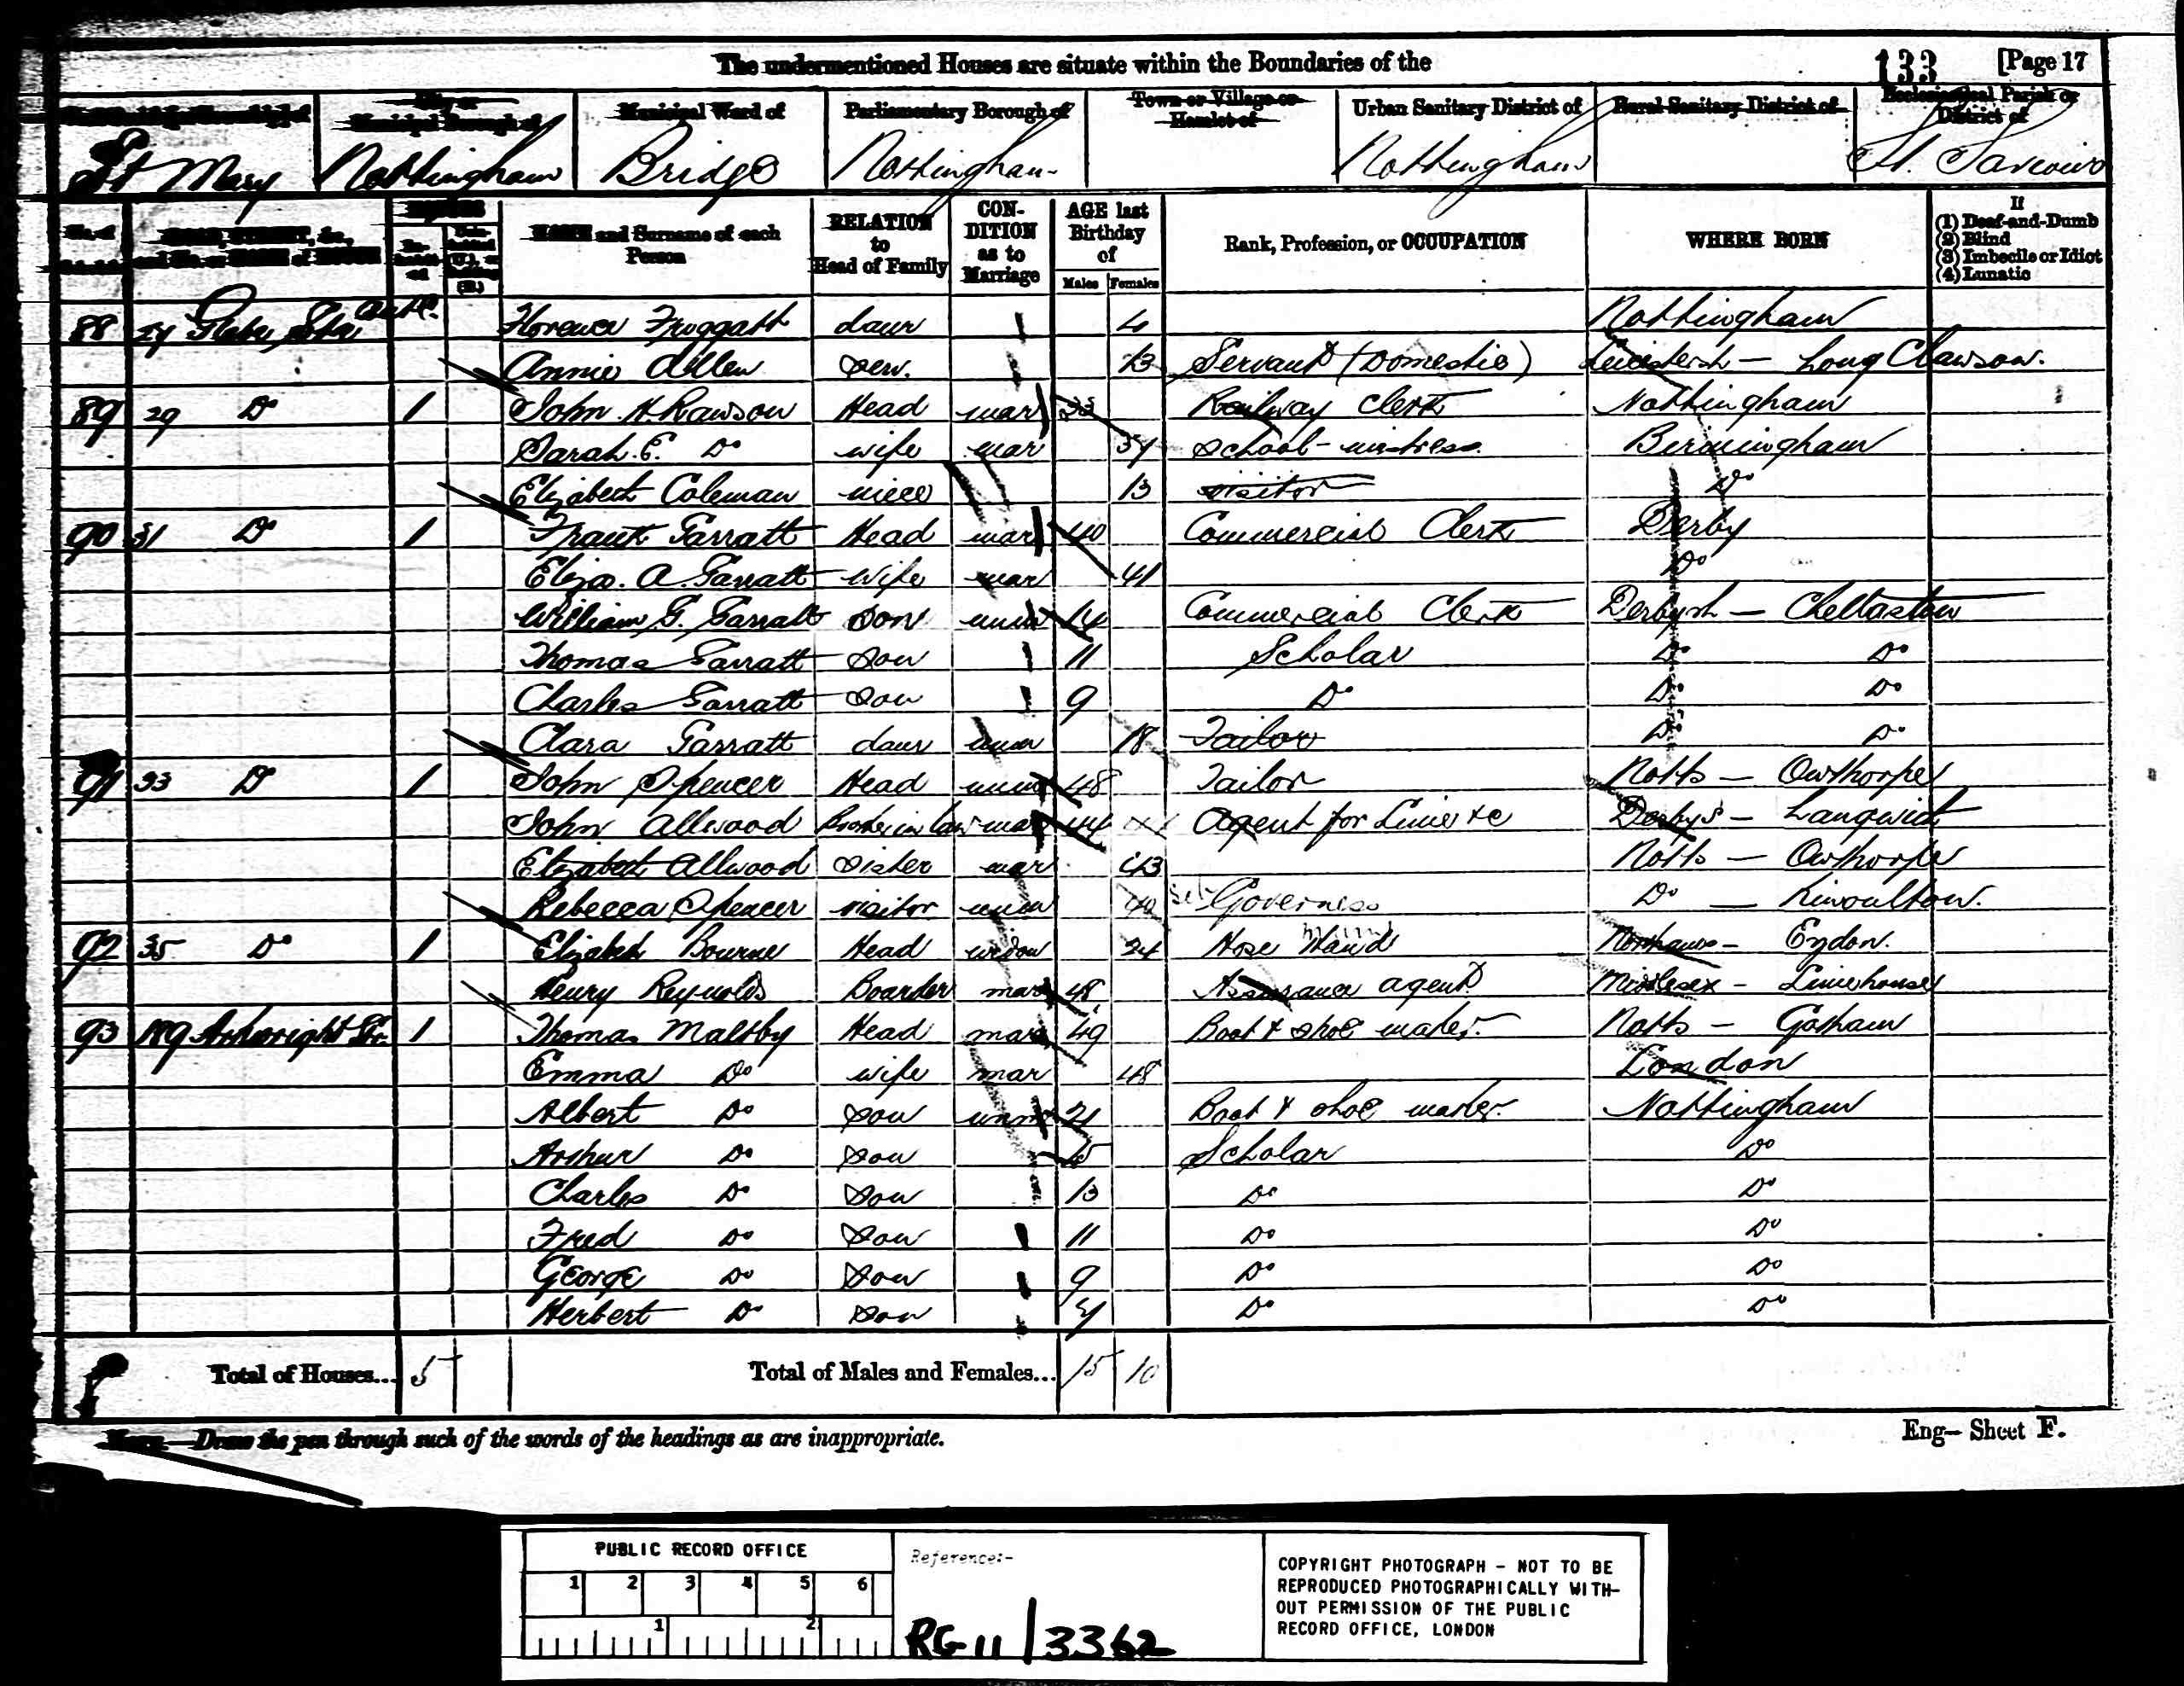 The undermentioned Houses are situate within the Boundaries of the
133 [Page 17
City or Municipal Borough of
Municipal Ward of
Parliamentary Borough of
Town or Village or Hamlet of
Urban Sanitary District of
Rural Sanitary District of
Ecclesiastical Parish or District of
St Mary Nottingham Bridge Nottingham Nottingham St. Saviours
ROAD, STREET, &c., and No. or NAME of HOUSE
HOUSES
NAME and Surname of each Person
RELATION to Head of Family
CON-DITION as to Marriage
AGE last Birthday of
Males Females
Rank, Profession, or OCCUPATION
WHERE BORN
If
(1) Deaf-and-Dumb
(2) Blind
(3) Imbecile or Idiot
(4) Lunatic
88 27 Glebe Florence Froggatt daur 4 Nottingham
Annie Allen Serv. 13 Servant (Domestic) Leicestersh - Long Clawson.
89 29 Do 1 John H. Rawson Head mar 33 Railway Clerk Nottingham
Sarah. E. Do wife mar 37 School-mistress Birmingham
Elizabeth Coleman niece 13 visitor Do
90 31 Do 1 Frank Garratt Head mar 40 Commercial Clerk Derby
Eliza. A. Garratt Wife mar 41 Do
William G. Garratt Son unm 14 Commercial Clerk Derbysh - Chellaston
Thomas Garratt Son 11 Scholar Do Do
Charles Garratt Son 9 Do Do Do
Clara Garratt daur unm 18 Tailor Do Do
91 33 Do 1 John Spencer Head unm 48 Tailor Notts - Owthorpe
John Allwood Brother in law mar 44 Agent for Lime &c Derbys - Langwith
Elizabeth Allwood Sister mar 43 Notts - Owthorpe
Rebecca Spencer visitor unm 40 Governess Do - Kinoulton.
92 35 Do 1 Elizabeth Bourne Head widow 24 Hose Hand Northamp - Eydon.
Henry Reynolds Boarder mar 48 Assurance agent Middlesex - Limehouse
93 Arkwright Str. 1 Thomas Maltby Head mar 49 Boot & shoe maker. Notts - Gotham
Emma Do wife mar 48 London
Albert Do Son unm 21 Boot & shoe maker. Nottingham
Arthur Do Son 15 Scholar Do
Charles Do Son 13 Do Do
Fred Do Son 11 Do Do
George Do Son 9 Do Do
Herbert Do Son Do Do
Total of Houses... 5 Total of Males and Females... 15 10
NOTE.—Draw the pen through such of the words of the headings as are inappropriate.
Eng— Sheet F.
PUBLIC RECORD OFFICE
1 2 3 4 5 6
1 2
Reference:-
RG 11 / 3362
COPYRIGHT PHOTOGRAPH - NOT TO BE
REPRODUCED PHOTOGRAPHICALLY WITH-
OUT PERMISSION OF THE PUBLIC
RECORD OFFICE, LONDON